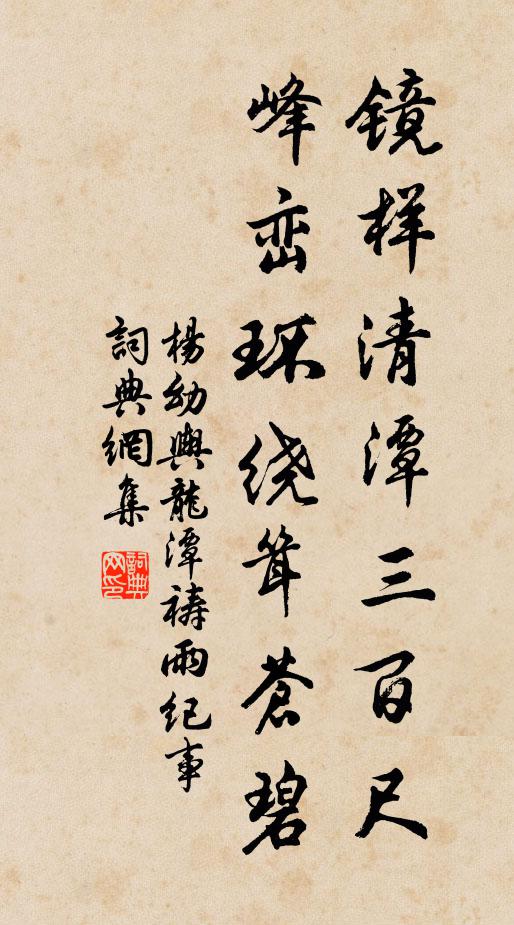 镜样清潭三百尺
峰峦环绕耸苍碧
楊幼輿龍潭禱雨紀事
詞典網集
詞典网印